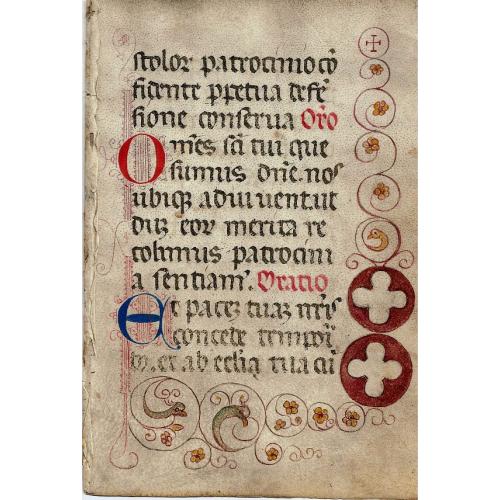 stolor patrocinio cō
fidente ꝑpetua defē
sione conserua Oro
Omēs sc̄i tui que
sumus dn̄e. nos
ubiqꝫ adiuuent. ut
duꝫ eor merita re
colimus patrocini
a sentiam᷒. Oratio
Et paceꝫ tuaꝫ nr̄is
concede tempori
bꝫ. et ab ecclia tua cū